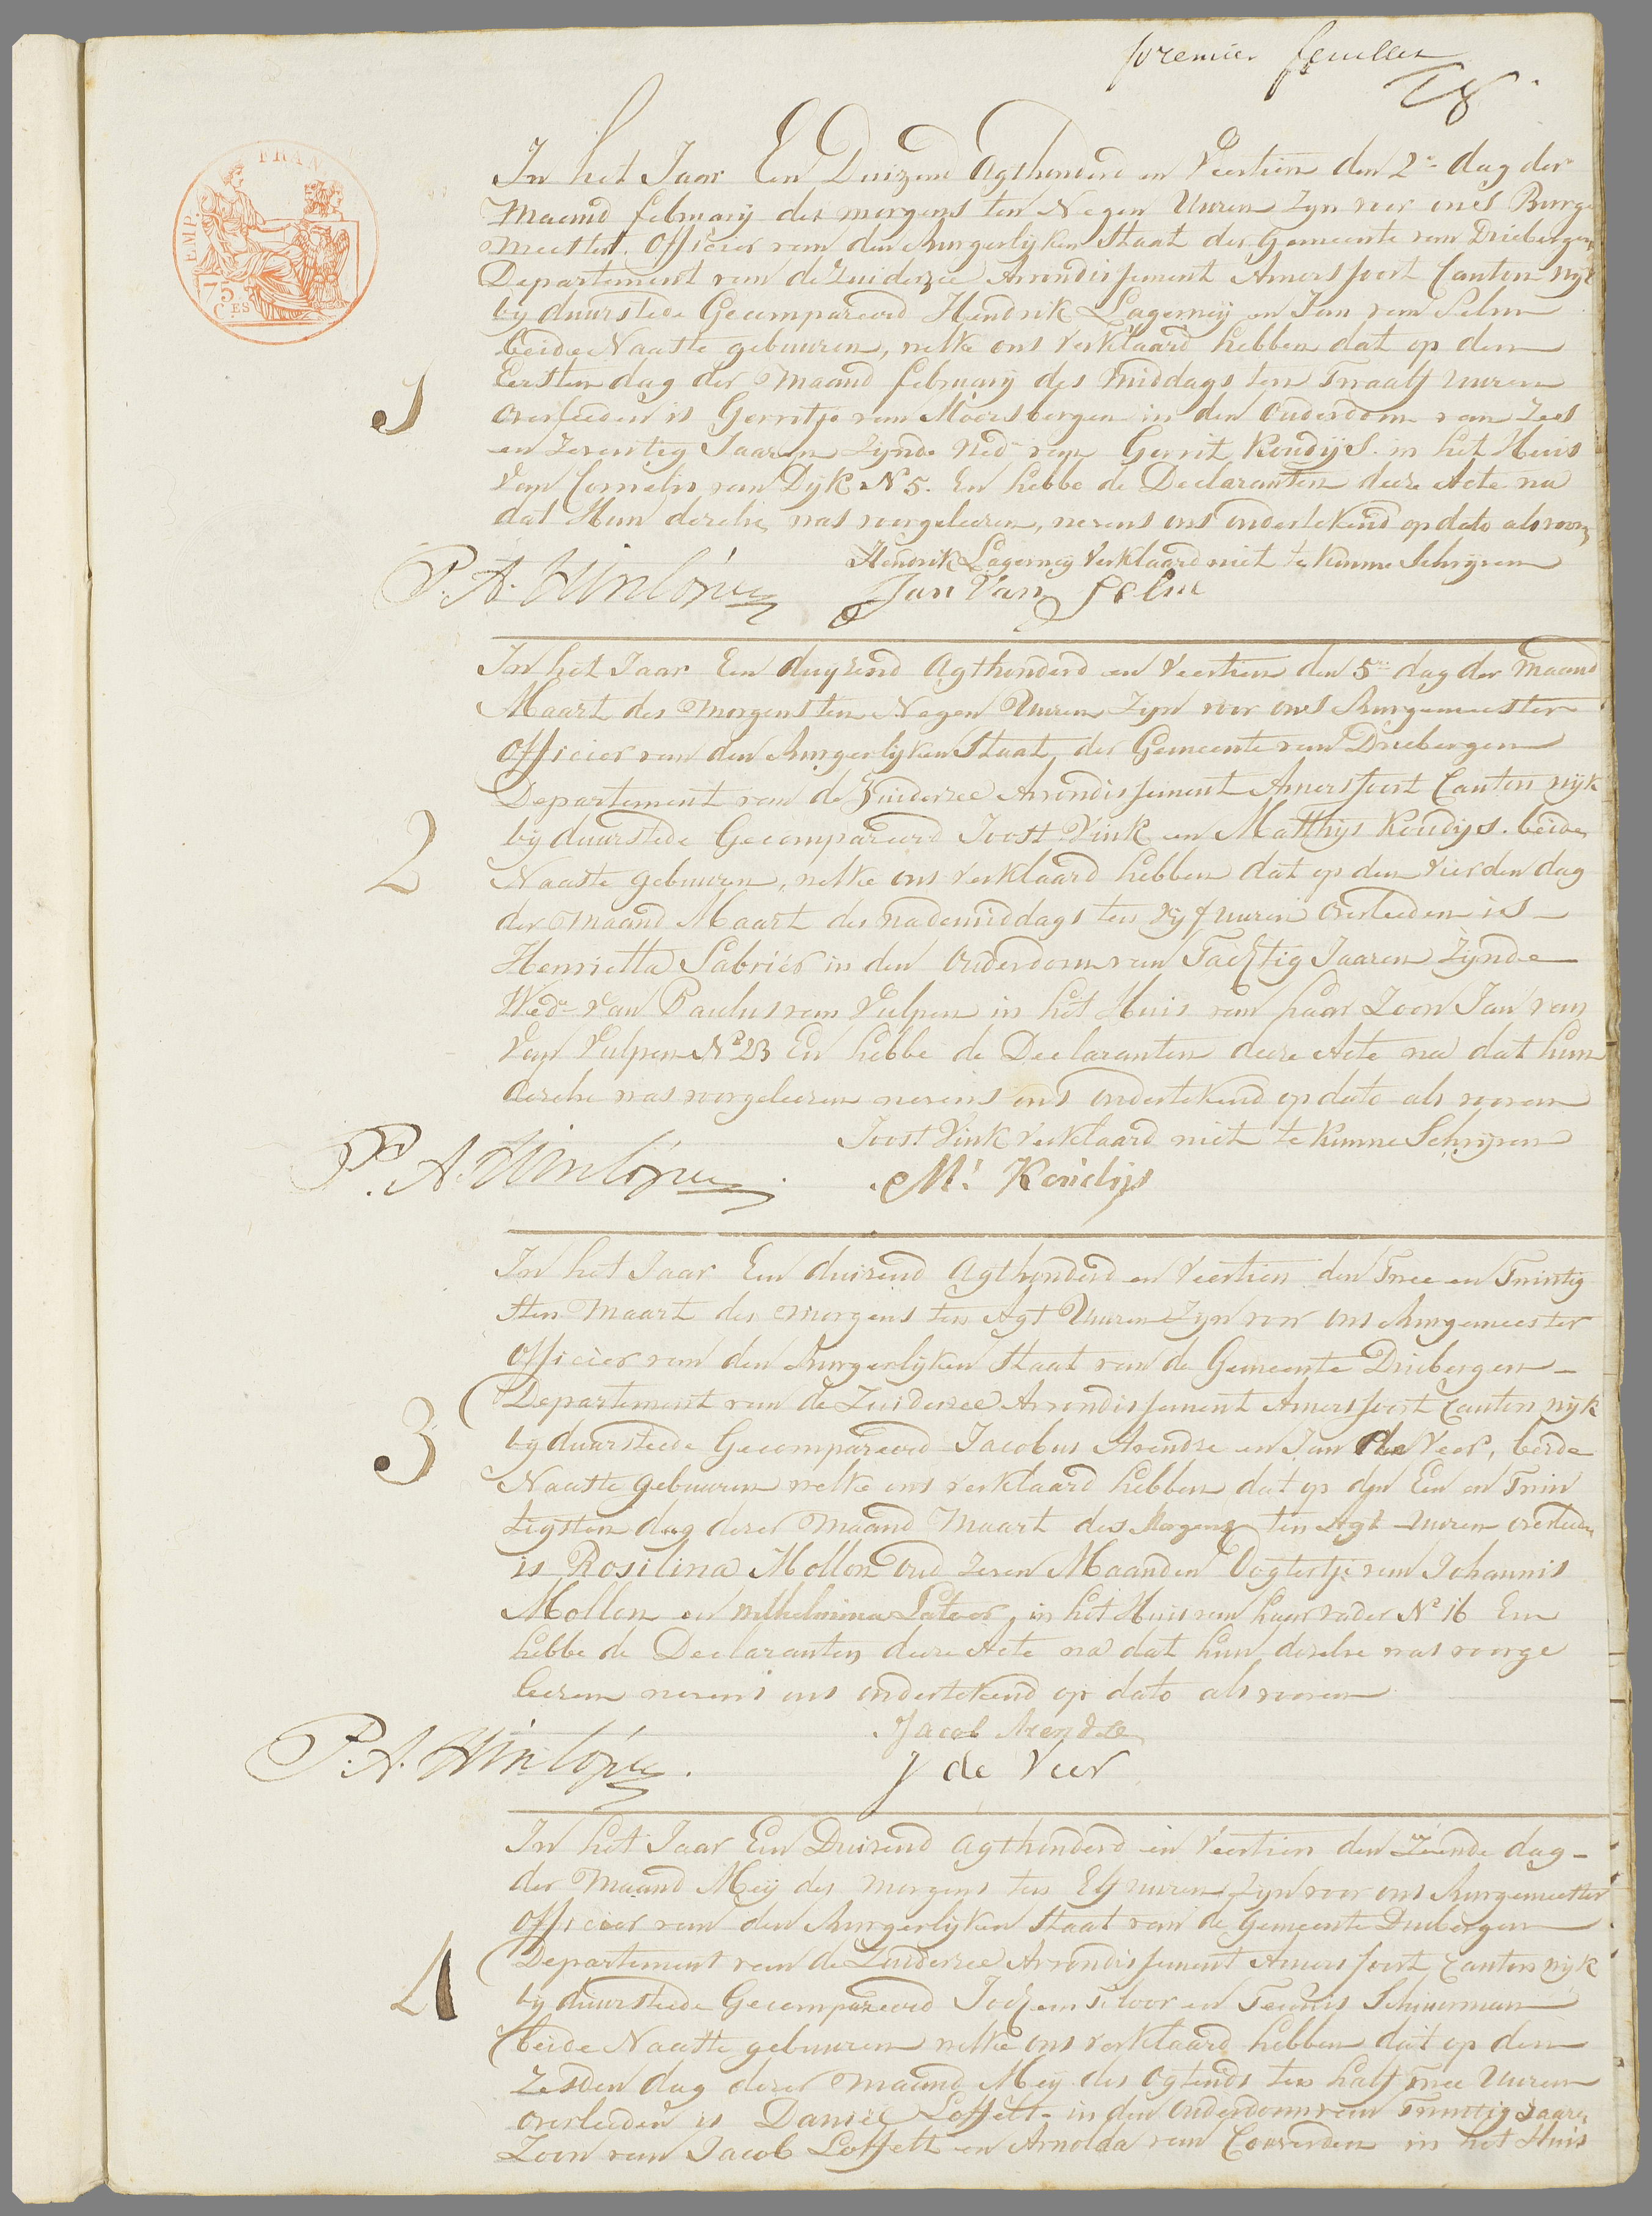 premier feuillet
EMP. FRAN
75
C.ES
In het Jaar Een Duizend Agthonderd en Veertien den 2e dag der
Maand february des morgens ten Negen Uuren Zyn voor ons Burge
Meester. Officier van den Burgerlyken Staat der Gemeente van Driebergen
Departement van de Zuiderzee Arrondissement Amersfoort Canton wyk
by duurstede Gecompareerd Hendrik Lagerwey en Jan van Selm
beide Naaste gebuuren, welke ons verklaard hebben dat op den
Eersten dag der Maand february des middags ten Twaalf uuren
1
overleeden is Gerritje van Moersbergen in den Ouderdom van Zes
en Zeventig Jaaren Zynde Wed van Gerrit Koudys in het Huis
van Cornelis van Dyk N 5. En hebbe de Declaranten deeze Acte na
dat Hun dezelve was voorgeleezen, nevens ons ondertekend op dato als voorn
Hendrik Lagerweij verklaard niet te kunne Schryven
P. A. Hinlópen Jan Van Selm
In het Jaar Een duyzend Agthonderd en Veertien den 5e dag der Maand
Maart des Morgens ten Negen Uuren Zyn voor ons Burgemeester
Officier van den Burgerlyken Staat der Gemeente van Driebergen
Departement van de Zuiderzee Arrondissement Amersfoort Canton wyk
2
by duurstede Gecompareerd Joost Vink en Matthys Koudys. beide
Naaste gebuuren, welke ons verklaard hebben dat op den vierden dag
der Maand Maart des nademiddags ten vyf uuren Overleeden is
Henrietta Sabrier in den Ouderdom van Tachtig Jaaren Zynde
Wede van Paulus van Vulpen in het Huis van haar Zoon Jan van
Van Vulpen No 23 En hebbe de Declaranten deeze Acte na dat hun
dezelve was voorgeleezen nevens ons ondertekend op dato als vooren
Joost Vink verklaard niet te kunne Schryven
P. A. Hinlópen. M. Koudijs
In het Jaar Een duizend Agthonderd en Veertien den Twee en Twintig
sten Maart des morgens ten Agt Uuren Zyn voor ons Burgemeester
Officier van den Burgerlyken Staat van de Gemeente Driebergen
Departement van de Zuiderzee Arrondissement Amersfoort Canton wyk
3
by duurstede Gecompareerd Jacobus Arendze en Jan de Veer, beide
Naaste gebuuren welke ons verklaard hebben dat op den Een en Twin
tigsten dag dezer Maand Maart des Morgens ten Agt uuren overleeden
is Rosilina Mollon Oud Zeven Maanden Dogtertje van Johannis
Mollon en Wilhelmina in het Huis van haar vader No 16 En
hebbe de Declaranten deeze Acte na dat hun dezelve was voorge
leezen nevens ons ondertekend op dato als vooren
Jacob Arendze
P. A. Hinlópen. J de Veer
In het Jaar Een Duizend Agthonderd en Veertien den Zevende dag
der Maand Meij des morgens ten Elf uuren Zyn voor ons Burgemeester
Officier van den Burgerlyken Staat van de Gemeente Driebergen
Departement van de Zuiderzee Arrondissement Amersfoort Canton wyk
4
by duurstede Gecompareerd Jochem Floor en Teunis Schuurman
beide Naaste gebuuren welke ons verklaard hebben dat op den
Zesden dag dezer Maand Meij des Ogtends ten half Twee Uuren
overleeden is Daniel Loffelt in den Ouderdom van Twintig Jaaren
Zoon van Jacob Loffelt en Arnolda van Coeverden in het Huis